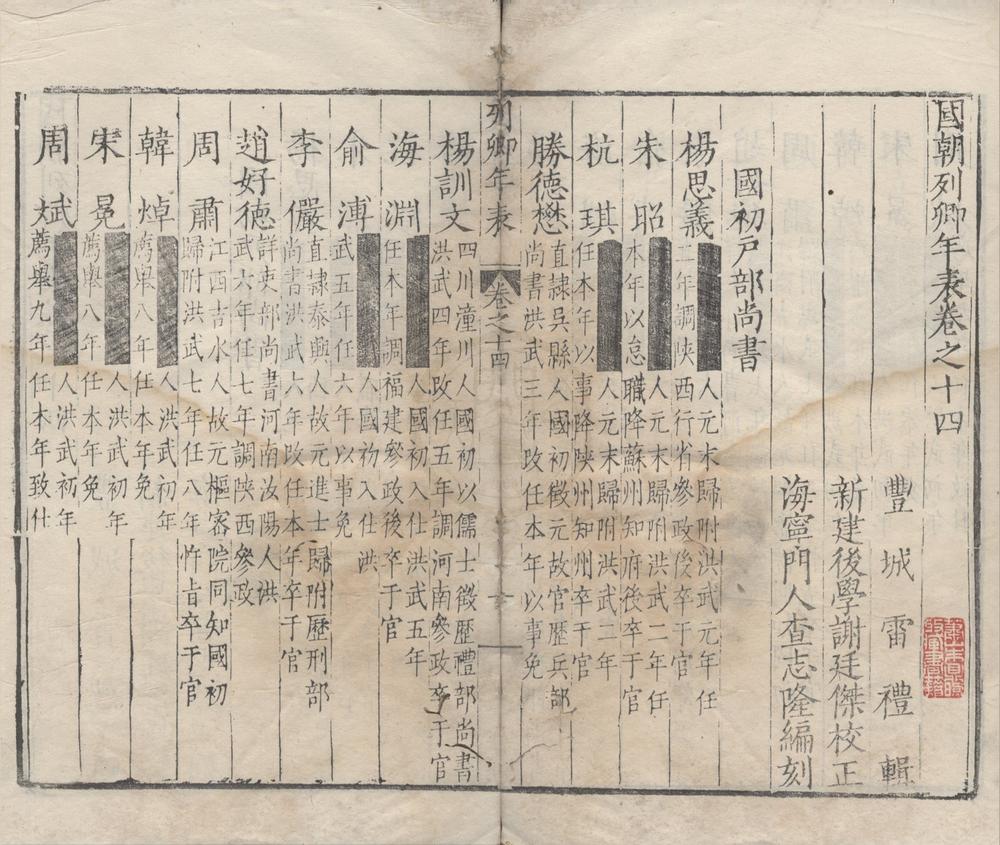 國朝列卿年表卷之十四
豐城雷禮輯
新建後學謝廷傑校正
海寧門人查志隆編刻
國初戶部尚書
楊思義
人元末歸附洪武元年任
三年調陝西行省參政後卒于官
朱昭
人元末歸附洪武二年任
本年以怠職降蘇州知府後卒于官
杭琪
人元末歸附洪武二年
任本年以事降陝州知州卒于官
滕德懋
直隷吳縣人國初徵元故官歷兵部
尚書洪武三年改任本年以事免
列卿年表
卷之十四
楊訓文
四川潼川人國初以儒士徵歷禮部尚書
洪武四年改任五年調河南參政卒于官
海淵
人國初入仕洪武五年
任本年調福建參政後卒于官
俞溥
人國初入仕洪
武五年任六年以事免
李儼
直隷泰興人故元進士歸附歷刑部
尚書洪武六年改任本年卒于官
趙好德
詳吏部尚書河南汝陽人洪
武六年任七年調陝西參政
周肅
江西吉水人故元樞密院同知國初
歸附洪武七年任八年忤旨卒于官
韓焯
人洪武初年
薦舉八年任本年免
宋冕
人洪武初年
薦舉八年任本年免
周斌
人洪武初年
薦舉九年任本年致仕